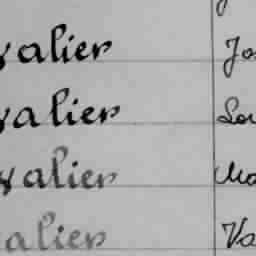 valier Jo
valier Lou
valier Ma
alier Va